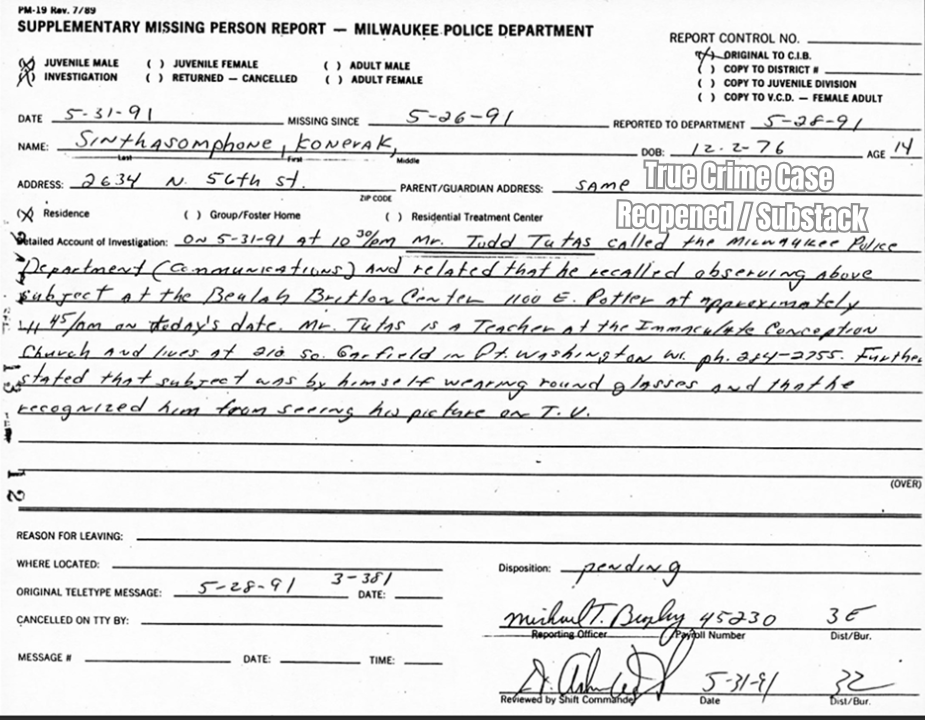 PM-19 Rev. 7/89
SUPPLEMENTARY MISSING PERSON REPORT — MILWAUKEE POLICE DEPARTMENT
REPORT CONTROL NO.
(X) JUVENILE MALE ( ) JUVENILE FEMALE ( ) ADULT MALE
(X) INVESTIGATION ( ) RETURNED — CANCELLED ( ) ADULT FEMALE
(X) ORIGINAL TO C.I.B.
( ) COPY TO DISTRICT #
( ) COPY TO JUVENILE DIVISION
( ) COPY TO V.C.D. — FEMALE ADULT
DATE 5-31-91 MISSING SINCE 5-26-91 REPORTED TO DEPARTMENT 5-28-91
NAME: Sinthasomphone, Konerak, DOB: 12-2-76 AGE 14
Last First Middle
ADDRESS: 2634 N. 56th st. PARENT/GUARDIAN ADDRESS: SAME
ZIP CODE
True Crime Case
Reopened / Substack
(X) Residence ( ) Group/Foster Home ( ) Residential Treatment Center
Detailed Account of Investigation: ON 5-31-91 AT 10 30/pm Mr. Todd Tutas called the Milwaukee Police
Department (Communications) AND related that he recalled observing above
subject at the Beulah Britton Center 1100 E. Potter at approximately
11 45/am on today's date. Mr. Tutas is a Teacher at the Immaculate Conception
Church and lives at 210 So. Garfield in Pt. Washington Wi. ph. 284-2755. Further
stated that subject was by himself wearing round glasses and that he
recognized him from seeing his picture on T.V.
(OVER)
12
REASON FOR LEAVING:
WHERE LOCATED:
Disposition: pending
ORIGINAL TELETYPE MESSAGE: 5-28-91 3-381 DATE:
CANCELLED ON TTY BY:
Michael T. 45230 3E
Reporting Officer Payroll Number Dist/Bur.
MESSAGE # DATE: TIME:
5-31-91 32
Reviewed by Shift Commander Date Dist/Bur.